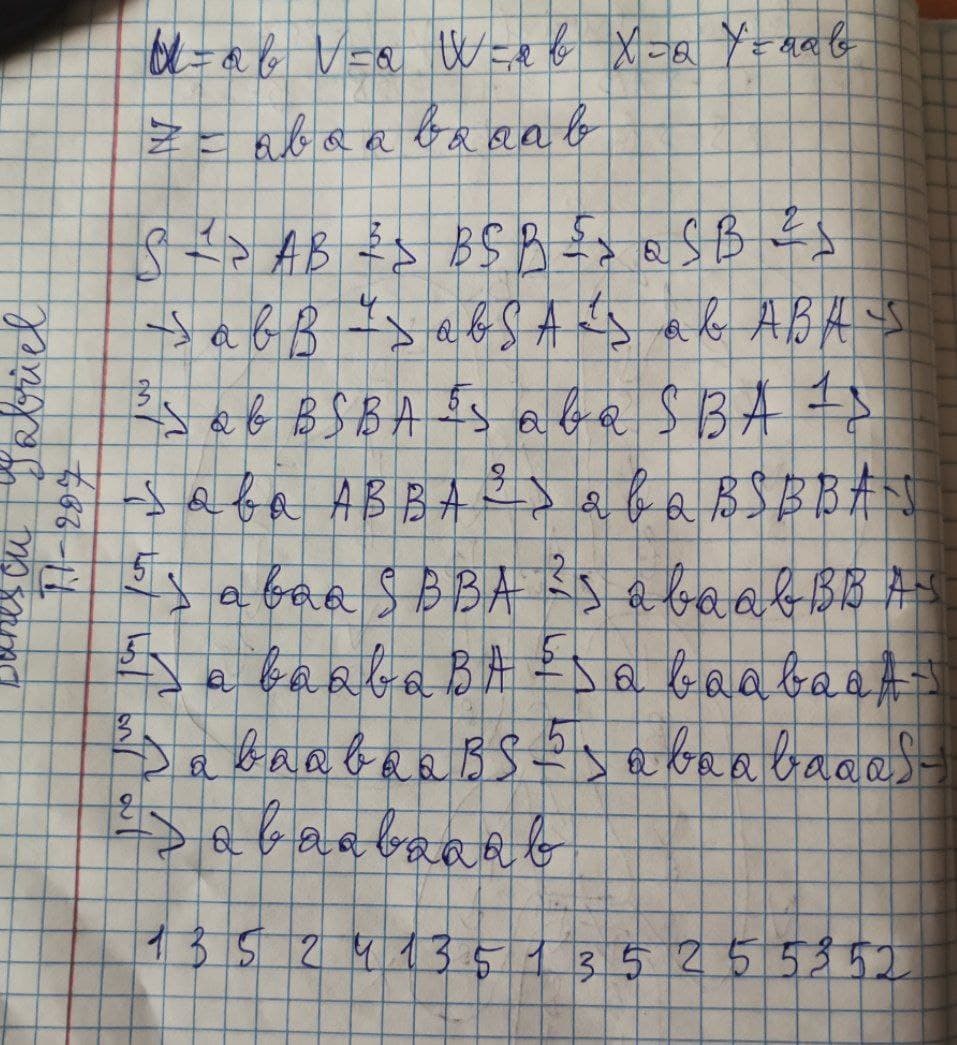 U = ab V = a W = ab X = a Y = aab
Z = abaabaaab
S 1→ AB 3→ BSB 5→ aSB 2→
→ abB 4→ abSA 1→ abABA →
3→ abBSBA 5→ abaSBA 1→
→ abaABBA 3→ abaBSBBA →
5→ abaaSBBA 2→ abaabBBA →
5→ abaabaBA 5→ abaabaaA →
3→ abaabaaBS 5→ abaabaaaS →
2→ abaabaaab
1 3 5 2 4 1 3 5 1 3 5 2 5 5 3 5 2
Gabriel